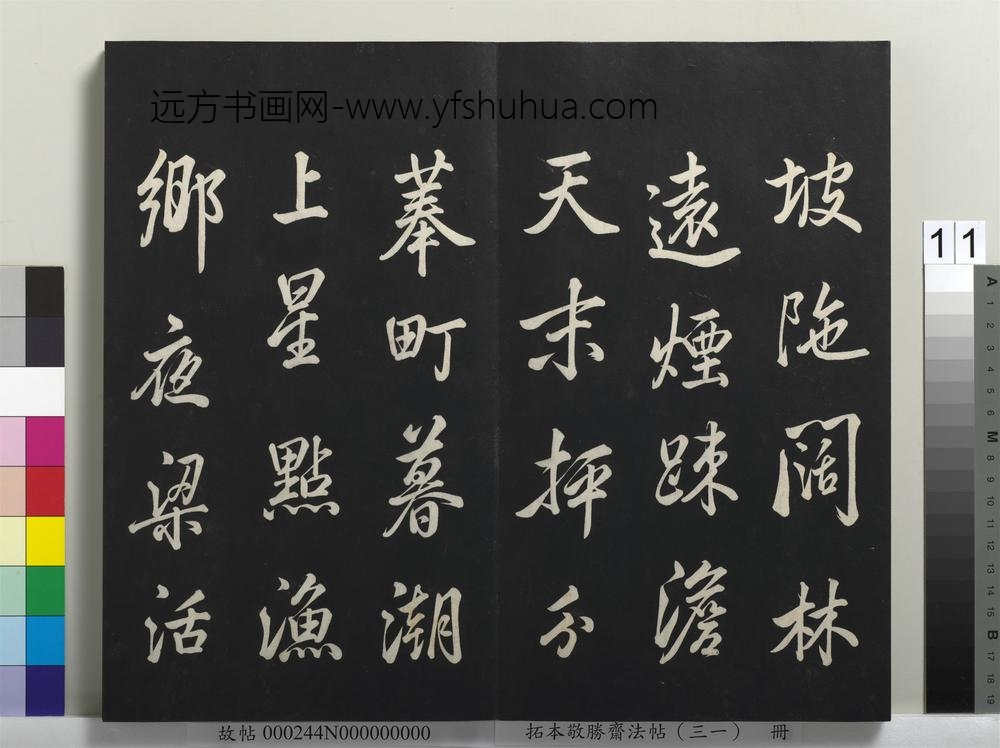 远方书画网-www.yfshuhua.com
坡陁闊林
遠煙踈澹
天末抨分
菶町暮潮
上星點漁
鄉夜梁活
11
A 1 2 3 4 5 6 M 8 9 10 11 12 13 14 15 B 17 18 19
故帖 000244N000000000
拓本敬勝齋法帖（三一） 冊